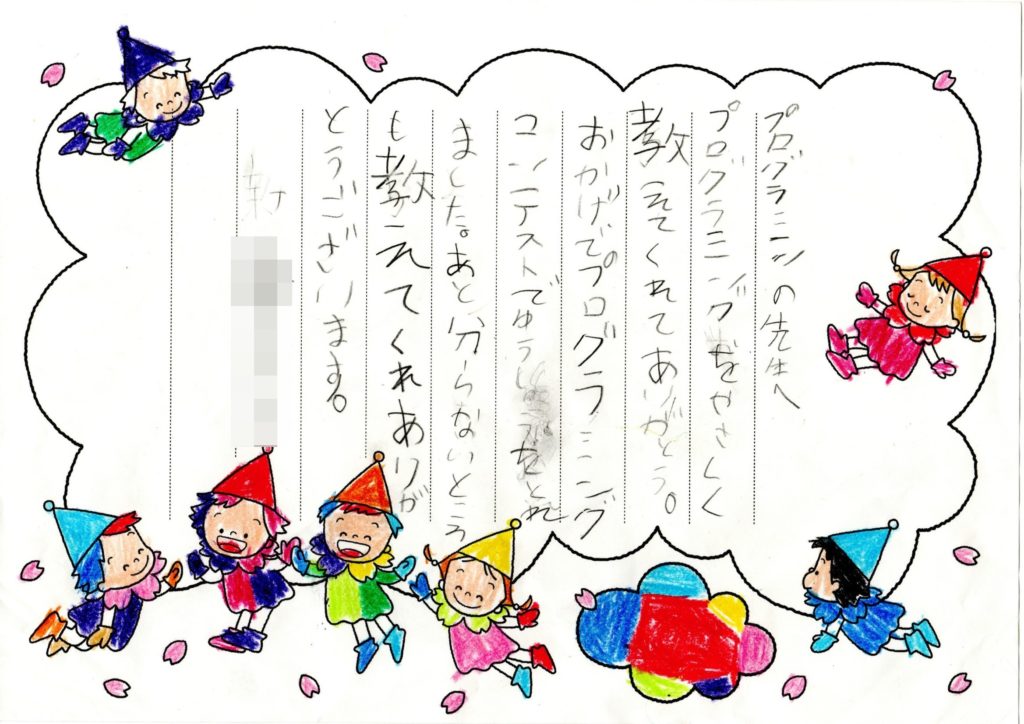 プログラミンの先生へ
プログラミングをやさしく
教えてくれてありがとう。
おかげでプログラミング
コンテストでゆう をとれ
ました。あと分らないところ
も教えてくれありが
とうございます。